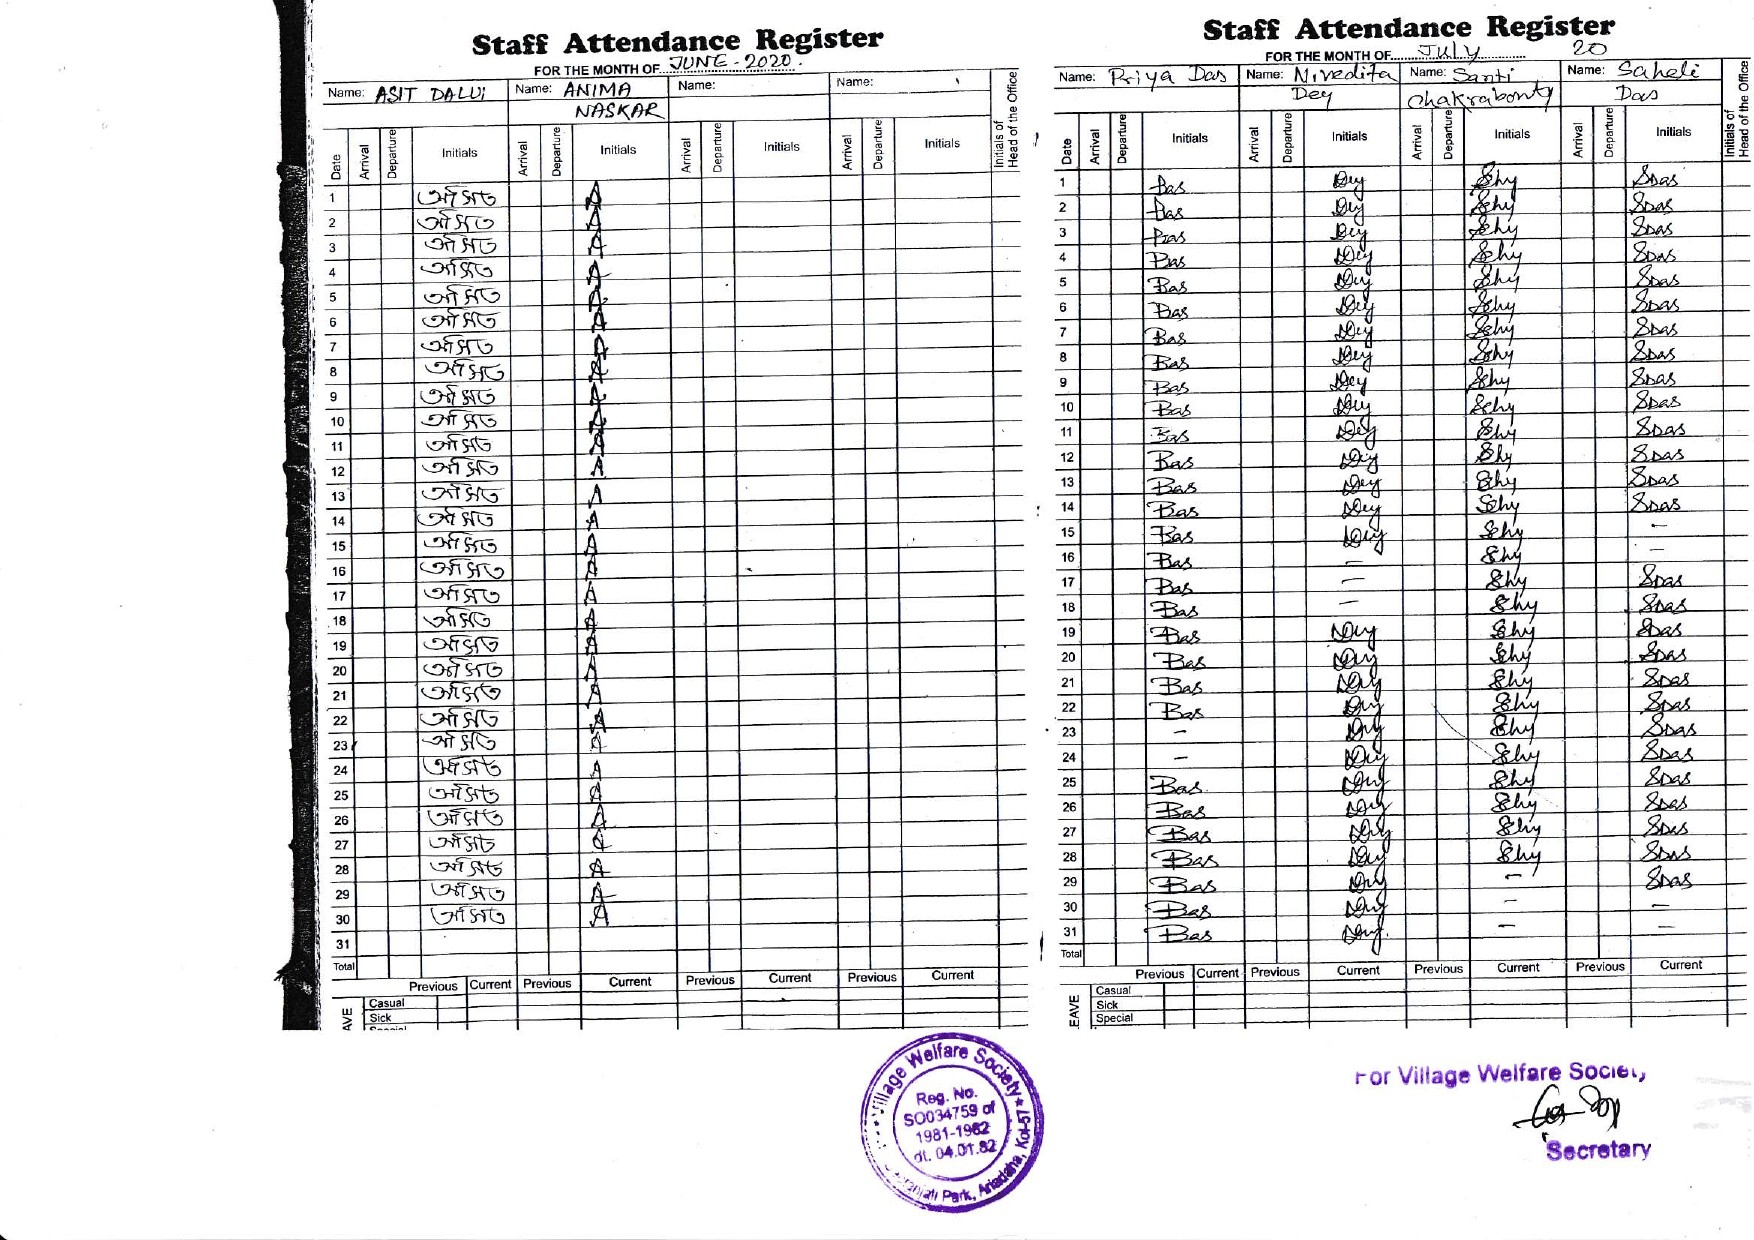 Staff Attendance Register
FOR THE MONTH OF JUNE - 2020.
Name: ASIT DALUI Name: ANIMA NASKAR Name: Name: Initials of Head of the Office
Date Arrival Departure Initials Arrival Departure Initials Arrival Departure Initials Arrival Departure Initials
1 অসিত A
2 অসিত A
3 অসিত A
4 অসিত A
5 অসিত A
6 অসিত A
7 অসিত A
8 অসিত A
9 অসিত A
10 অসিত A
11 অসিত A
12 অসিত A
13 অসিত A
14 অসিত A
15 অসিত A
16 অসিত A
17 অসিত A
18 অসিত A
19 অসিত A
20 অসিত A
21 অসিত A
22 অসিত A
23 অসিত A
24 অসিত A
25 অসিত A
26 অসিত A
27 অসিত A
28 অসিত A
29 অসিত A
30 অসিত A
31
Total
Previous Current Previous Current Previous Current Previous Current
AVE Casual
Sick
Special
Staff Attendance Register
FOR THE MONTH OF July 20
Name: Priya Das Name: Nivedita Dey Name: Santi Chakraborty Name: Saheli Das Initials of Head of the Office
Date Arrival Departure Initials Arrival Departure Initials Arrival Departure Initials Arrival Departure Initials
1 Das Dey Shy SDas
2 Das Dey Shy SDas
3 Das Dey Shy SDas
4 Das Dey Shy SDas
5 Das Dey Shy SDas
6 Das Dey Shy SDas
7 Das Dey Shy SDas
8 Das Dey Shy SDas
9 Das Dey Shy SDas
10 Das Dey Shy SDas
11 Das Dey Shy SDas
12 Das Dey Shy SDas
13 Das Dey Shy SDas
14 Das Dey Shy SDas
15 Das Dey Shy -
16 Das - Shy -
17 Das - Shy SDas
18 Das - Shy SDas
19 Das Dey Shy SDas
20 Das Dey Shy SDas
21 Das Dey Shy SDas
22 Das Dey Shy SDas
23 - Dey Shy SDas
24 - Dey Shy SDas
25 Das Dey Shy SDas
26 Das Dey Shy SDas
27 Das Dey Shy SDas
28 Das Dey Shy SDas
29 Das Dey - SDas
30 Das Dey - -
31 Das Dey - -
Total
Previous Current Previous Current Previous Current Previous Current
EAVE Casual
Sick
Special
Village Welfare Society ★
Park, Ariadaha, Kol-57
Reg. No.
SO034759 of
1981-1982
dt. 04.01.82
For Village Welfare Society
Secretary